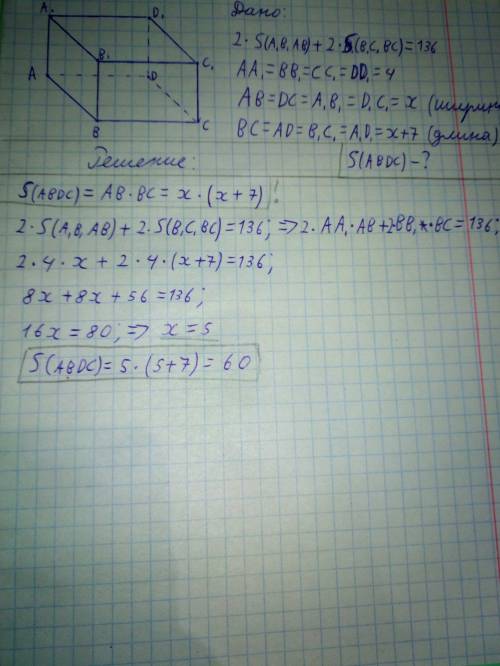 A₁
D₁
Дано:
B₁
C₁
A
D
B
C
2·S(A₁B₁AB)+2·S(B₁C₁BC)=136
AA₁=BB₁=CC₁=DD₁=4
AB=DC=A₁B₁=D₁C₁=x (ширина
BC=AD=B₁C₁=A₁D₁=x+7 (длина)
S(ABDC)-?
Решение:
S(ABDC)=AB·BC=x·(x+7)!
2·S(A₁B₁AB)+2·S(B₁C₁BC)=136; => 2·AA₁·AB+2·BB₁·BC=136;
2·4·x+2·4·(x+7)=136;
8x+8x+56=136;
16x=80; => x=5
S(ABDC)=5·(5+7)=60